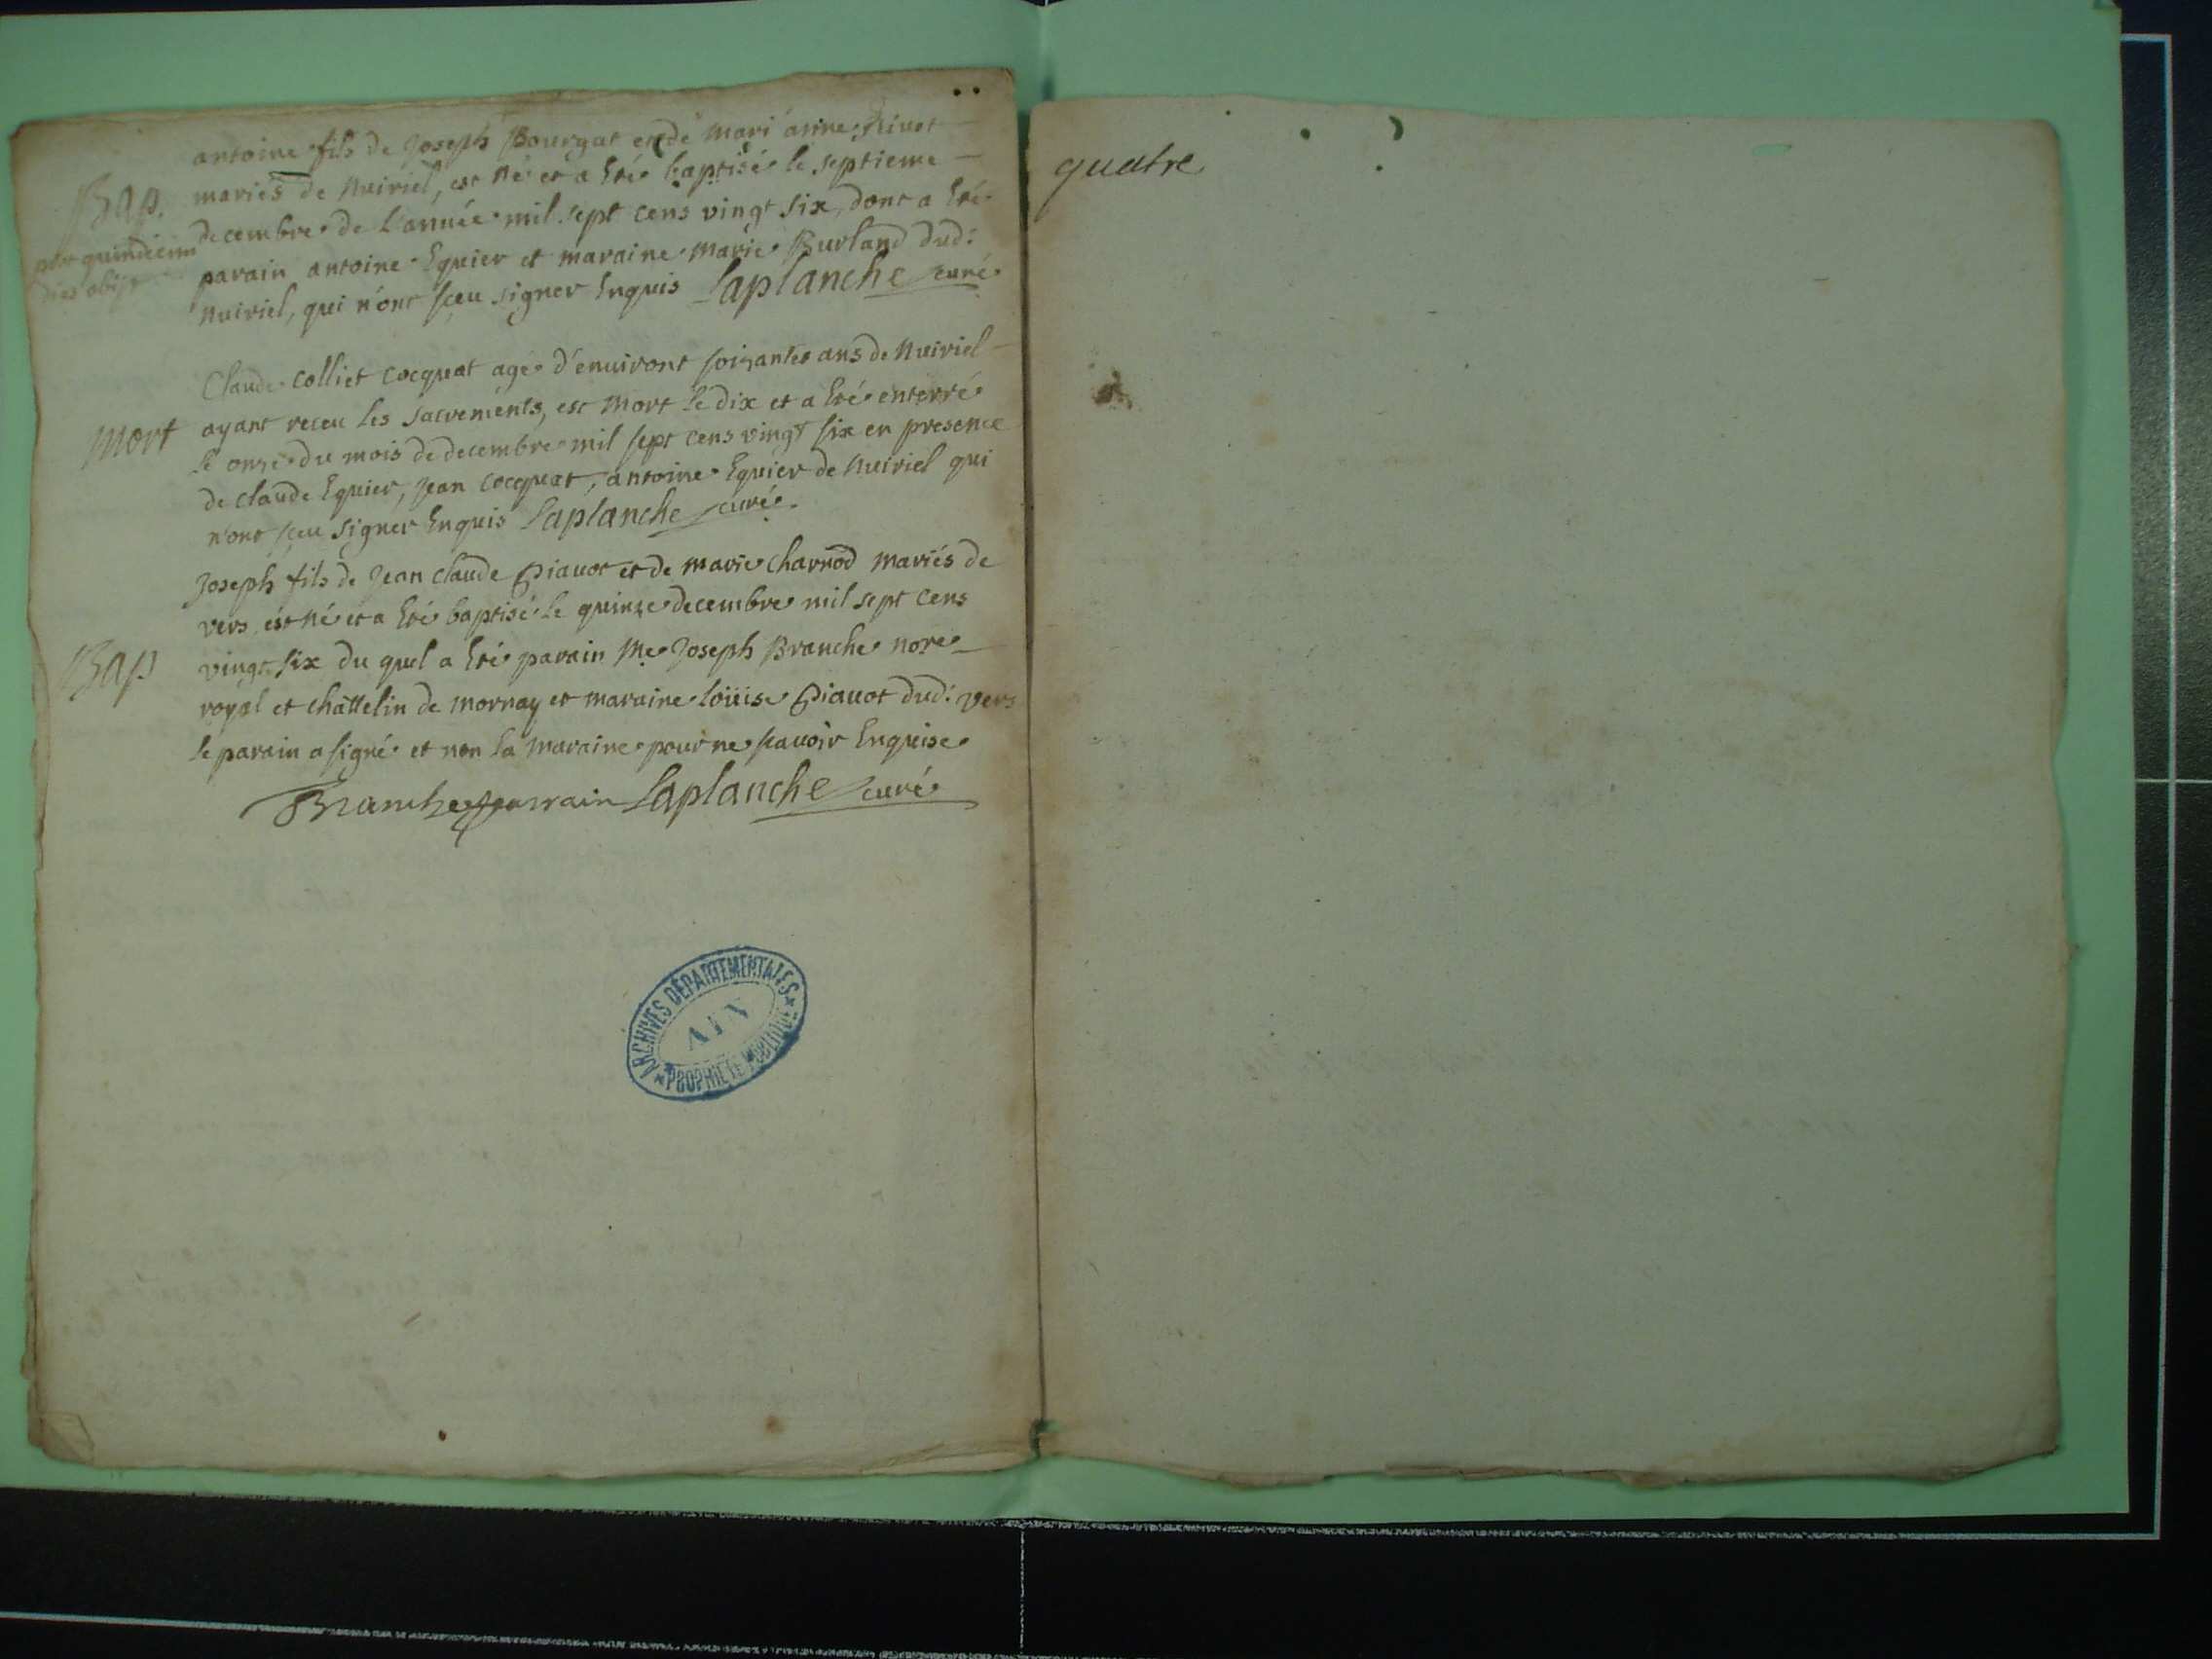 antoine fils de Joseph Bourgat et de mari anne Rivot
Bap. mariés de Nuiriel, est né et a été baptisé le septieme
decembre de L'année mil sept cens vingt six, dont a été
post quindecim dies obijt
parain antoine Equier et maraine marie Burland dud:
Nuiriel, qui n'ont sceu signer Enquis Laplanche curé
Claude colliet cocquat agé d'environt soixantes ans de Nuiriel
mort ayant receu les sacrements, est mort le dix et a été enterré
le onze du mois de decembre mil sept cens vingt six en presence
de claude Equier, Jean cocquat, antoine Equier de Nuiriel qui
n'ont sceu signer Enquis Laplanche curé
Joseph fils de Jean claude Piavot et de marie charnod mariés de
vers, est né et a été baptisé le quinze decembre mil sept cens
Bap vingt six du quel a été parain Me Joseph Branche nore
royal et châttelin de mornay et maraine loüise Piavot dud: vers
le parain a signé et non la maraine pour ne scavoir Enquise
Branche parrain Laplanche curé
ARCHIVES DÉPARTEMENTALES
AIN
PROPRIÉTÉ PUBLIQUE
quatre